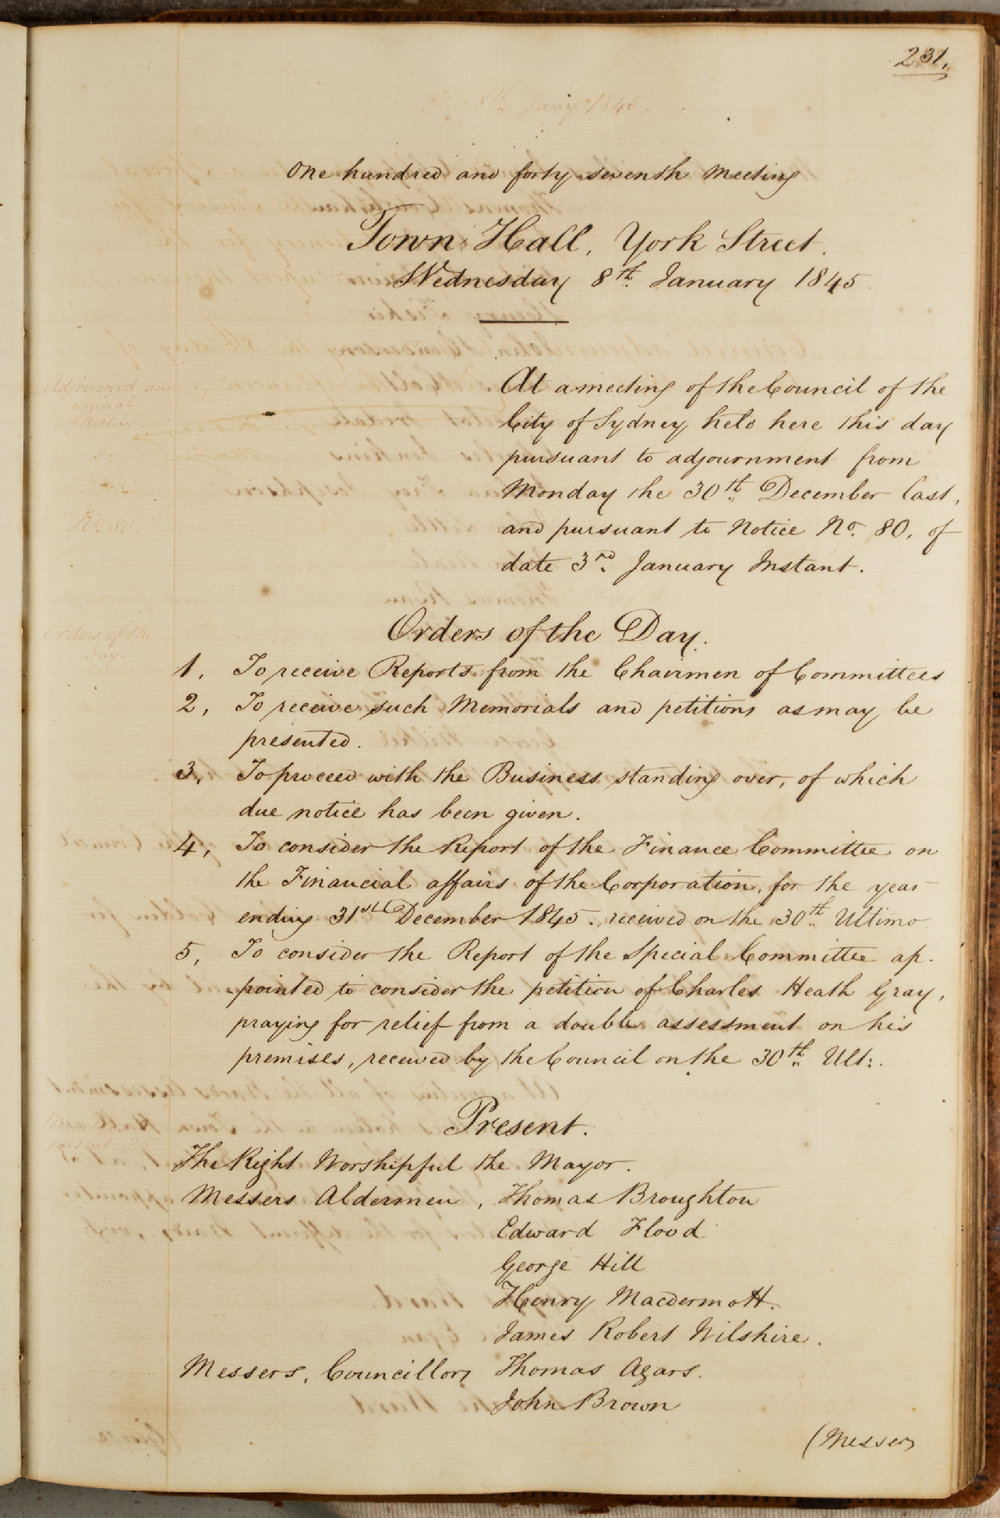 231.
8th Jany 1845
One hundred and forty seventh Meeting
Town Hall, York Street.
Wednesday 8th January 1845
Adjourned and
original
Meeting
At a meeting of the Council of the
City of Sydney held here this day
pursuant to adjournment from
Monday the 30th December last,
No 80
and pursuant to Notice No. 80, of
date 3rd January Instant.
Orders of the
Day
Orders of the Day.
1, To receive Reports from the Chairmen of Committees
2, To receive such Memorials and petitions as may be
presented.
3, To proceed with the Business standing over, of which
due notice has been given.
4, To consider the Report of the Finance Committee on
the Financial affairs of the Corporation, for the year
ending 31st December 1845, received on the 30th Ultimo
5, To consider the Report of the Special Committee ap-
pointed to consider the petition of Charles Heath Gray,
praying for relief from a double assessment on his
premises, received by the Council on the 30th Ult:.
Present.
The Right Worshipful the Mayor.
Messers Aldermen, Thomas Broughton
Edward Flood
George Hill
Henry Macdermott.
James Robert Wilshire.
Messers, Councillors Thomas Agars.
John Brown
(Messers